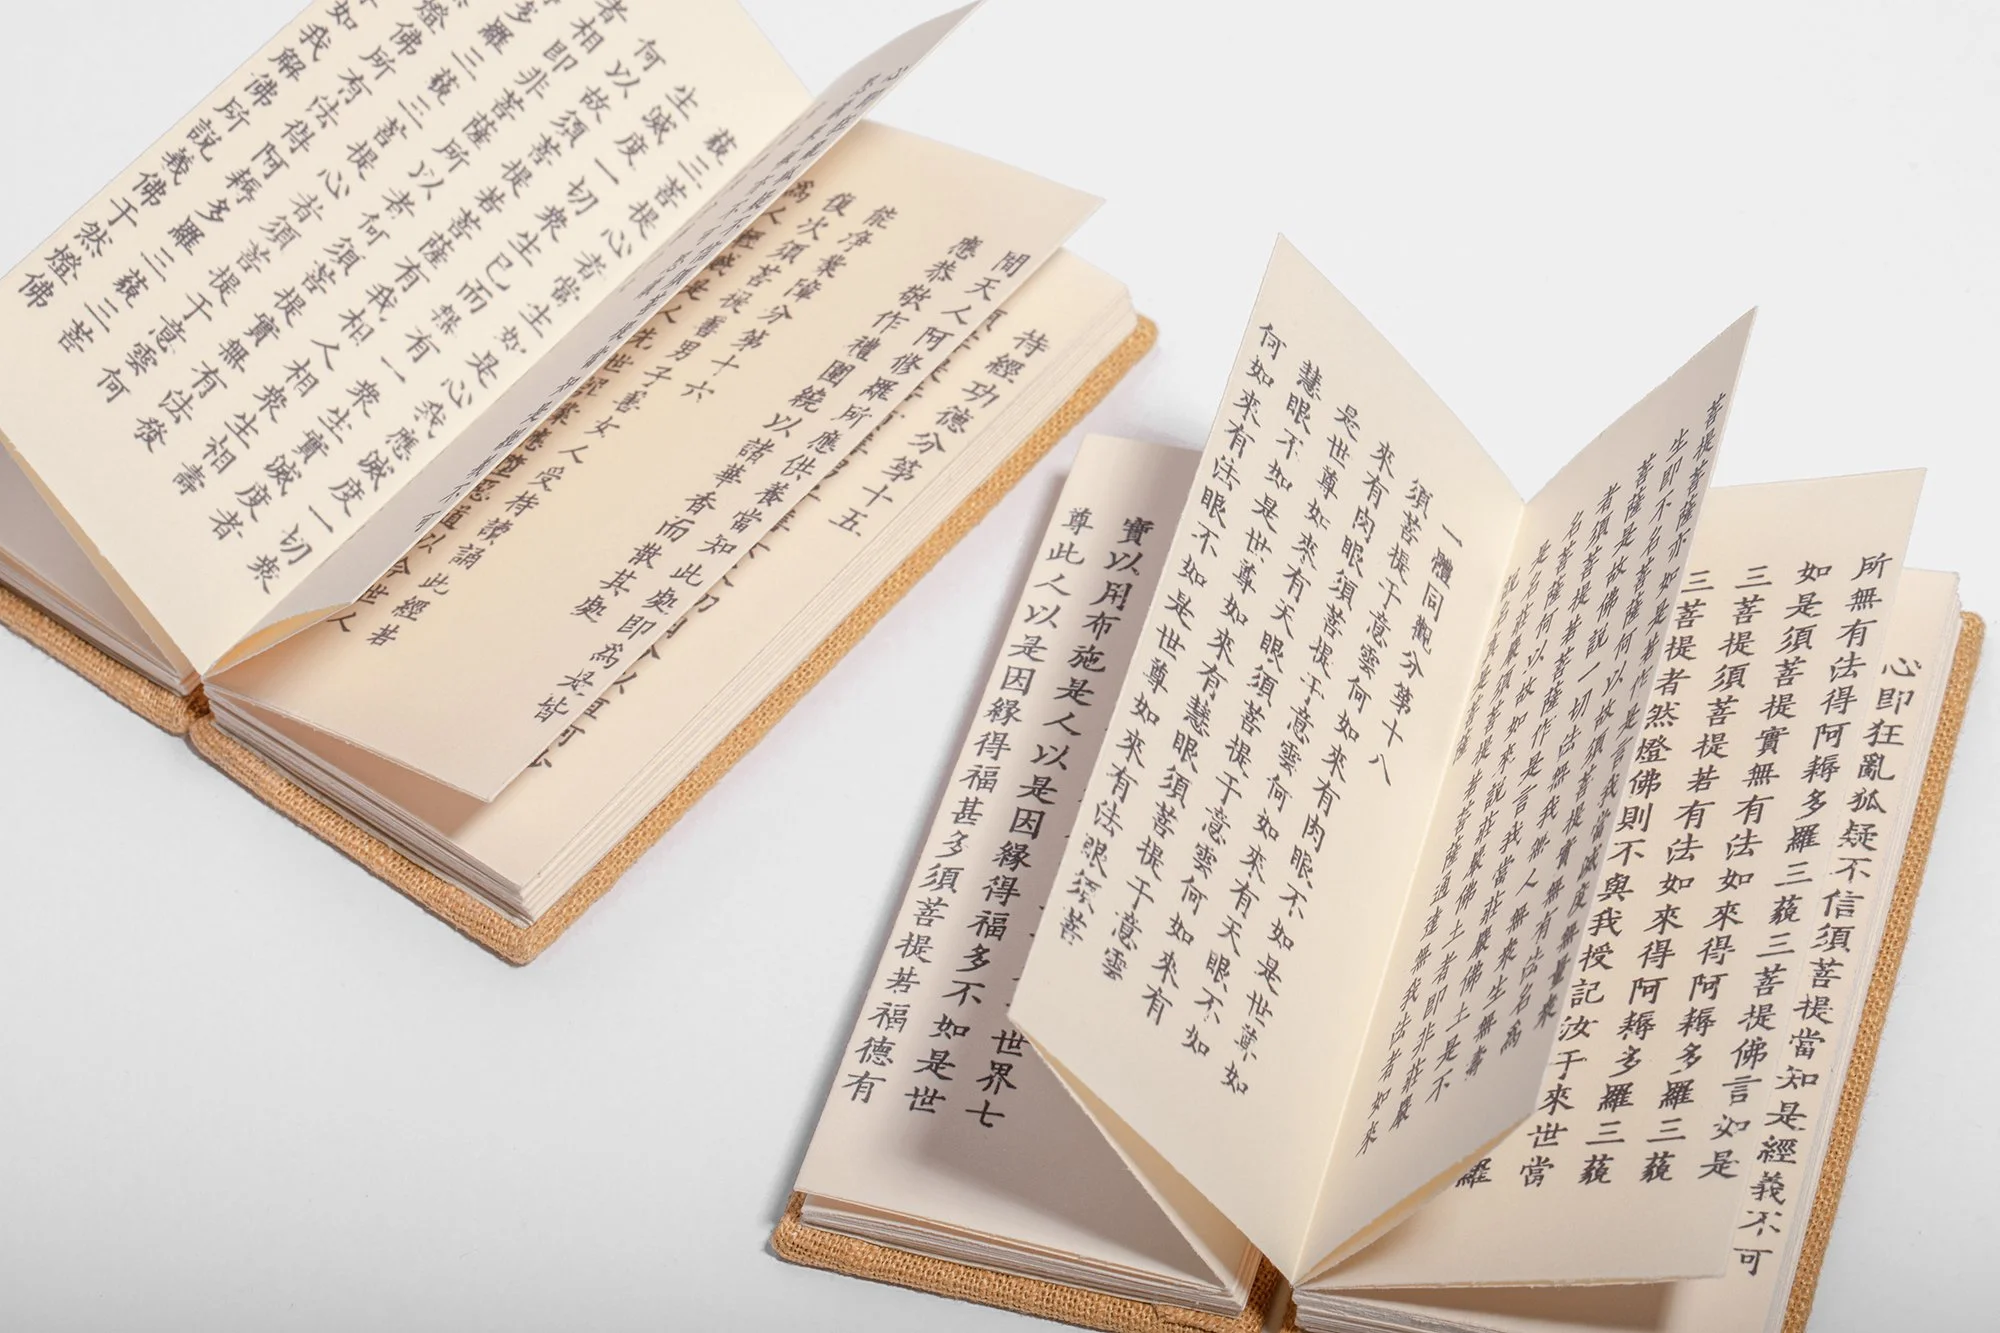 藐三菩提心者當生如是心我應滅度一切眾
生滅度一切眾生已而無有一眾生實滅度者
何以故須菩提若菩薩有我相人相眾生相壽
者相即非菩薩所以者何須菩提實無有法發
多羅三藐三菩提心者須菩提于意雲何
燈佛所有法得阿耨多羅三藐三菩
如我解佛所說義佛于然燈佛
持經功德分第十五
間天人阿修羅所應供養當知此處即為是皆
應恭敬作禮圍繞以諸華香而散其處
能淨業障分第十六
復次須菩提善男子善女人受持讀誦此經若
為人輕賤是人先世罪業應墮惡道以今世人
心即狂亂狐疑不信須菩提當知是經義不可
所無有法得阿耨多羅三藐三菩提佛言如是
如是須菩提實無有法如來得阿耨多羅三藐
三菩提須菩提若有法如來得阿耨多羅三藐
三菩提者然燈佛則不與我授記汝于來世當
菩提菩薩亦如是若作是言我當滅度無量眾
生即不名菩薩何以故須菩提實無有法名為
菩薩是故佛說一切法無我無人無眾生無壽
者須菩提若菩薩作是言我當莊嚴佛土是不
名菩薩何以故如來說莊嚴佛土者即非莊嚴
是名莊嚴須菩提若菩薩通達無我法者如來
說名真是菩薩
一體同觀分第十八
須菩提于意雲何如來有肉眼不如是世尊如
來有肉眼須菩提于意雲何如來有天眼不如
是世尊如來有天眼須菩提于意雲何如來有
慧眼不如是世尊如來有慧眼須菩提于意雲
何如來有法眼不如是世尊如來有法眼須菩
世界七
寶以用布施是人以是因緣得福多不如是世
尊此人以是因緣得福甚多須菩提若福德有